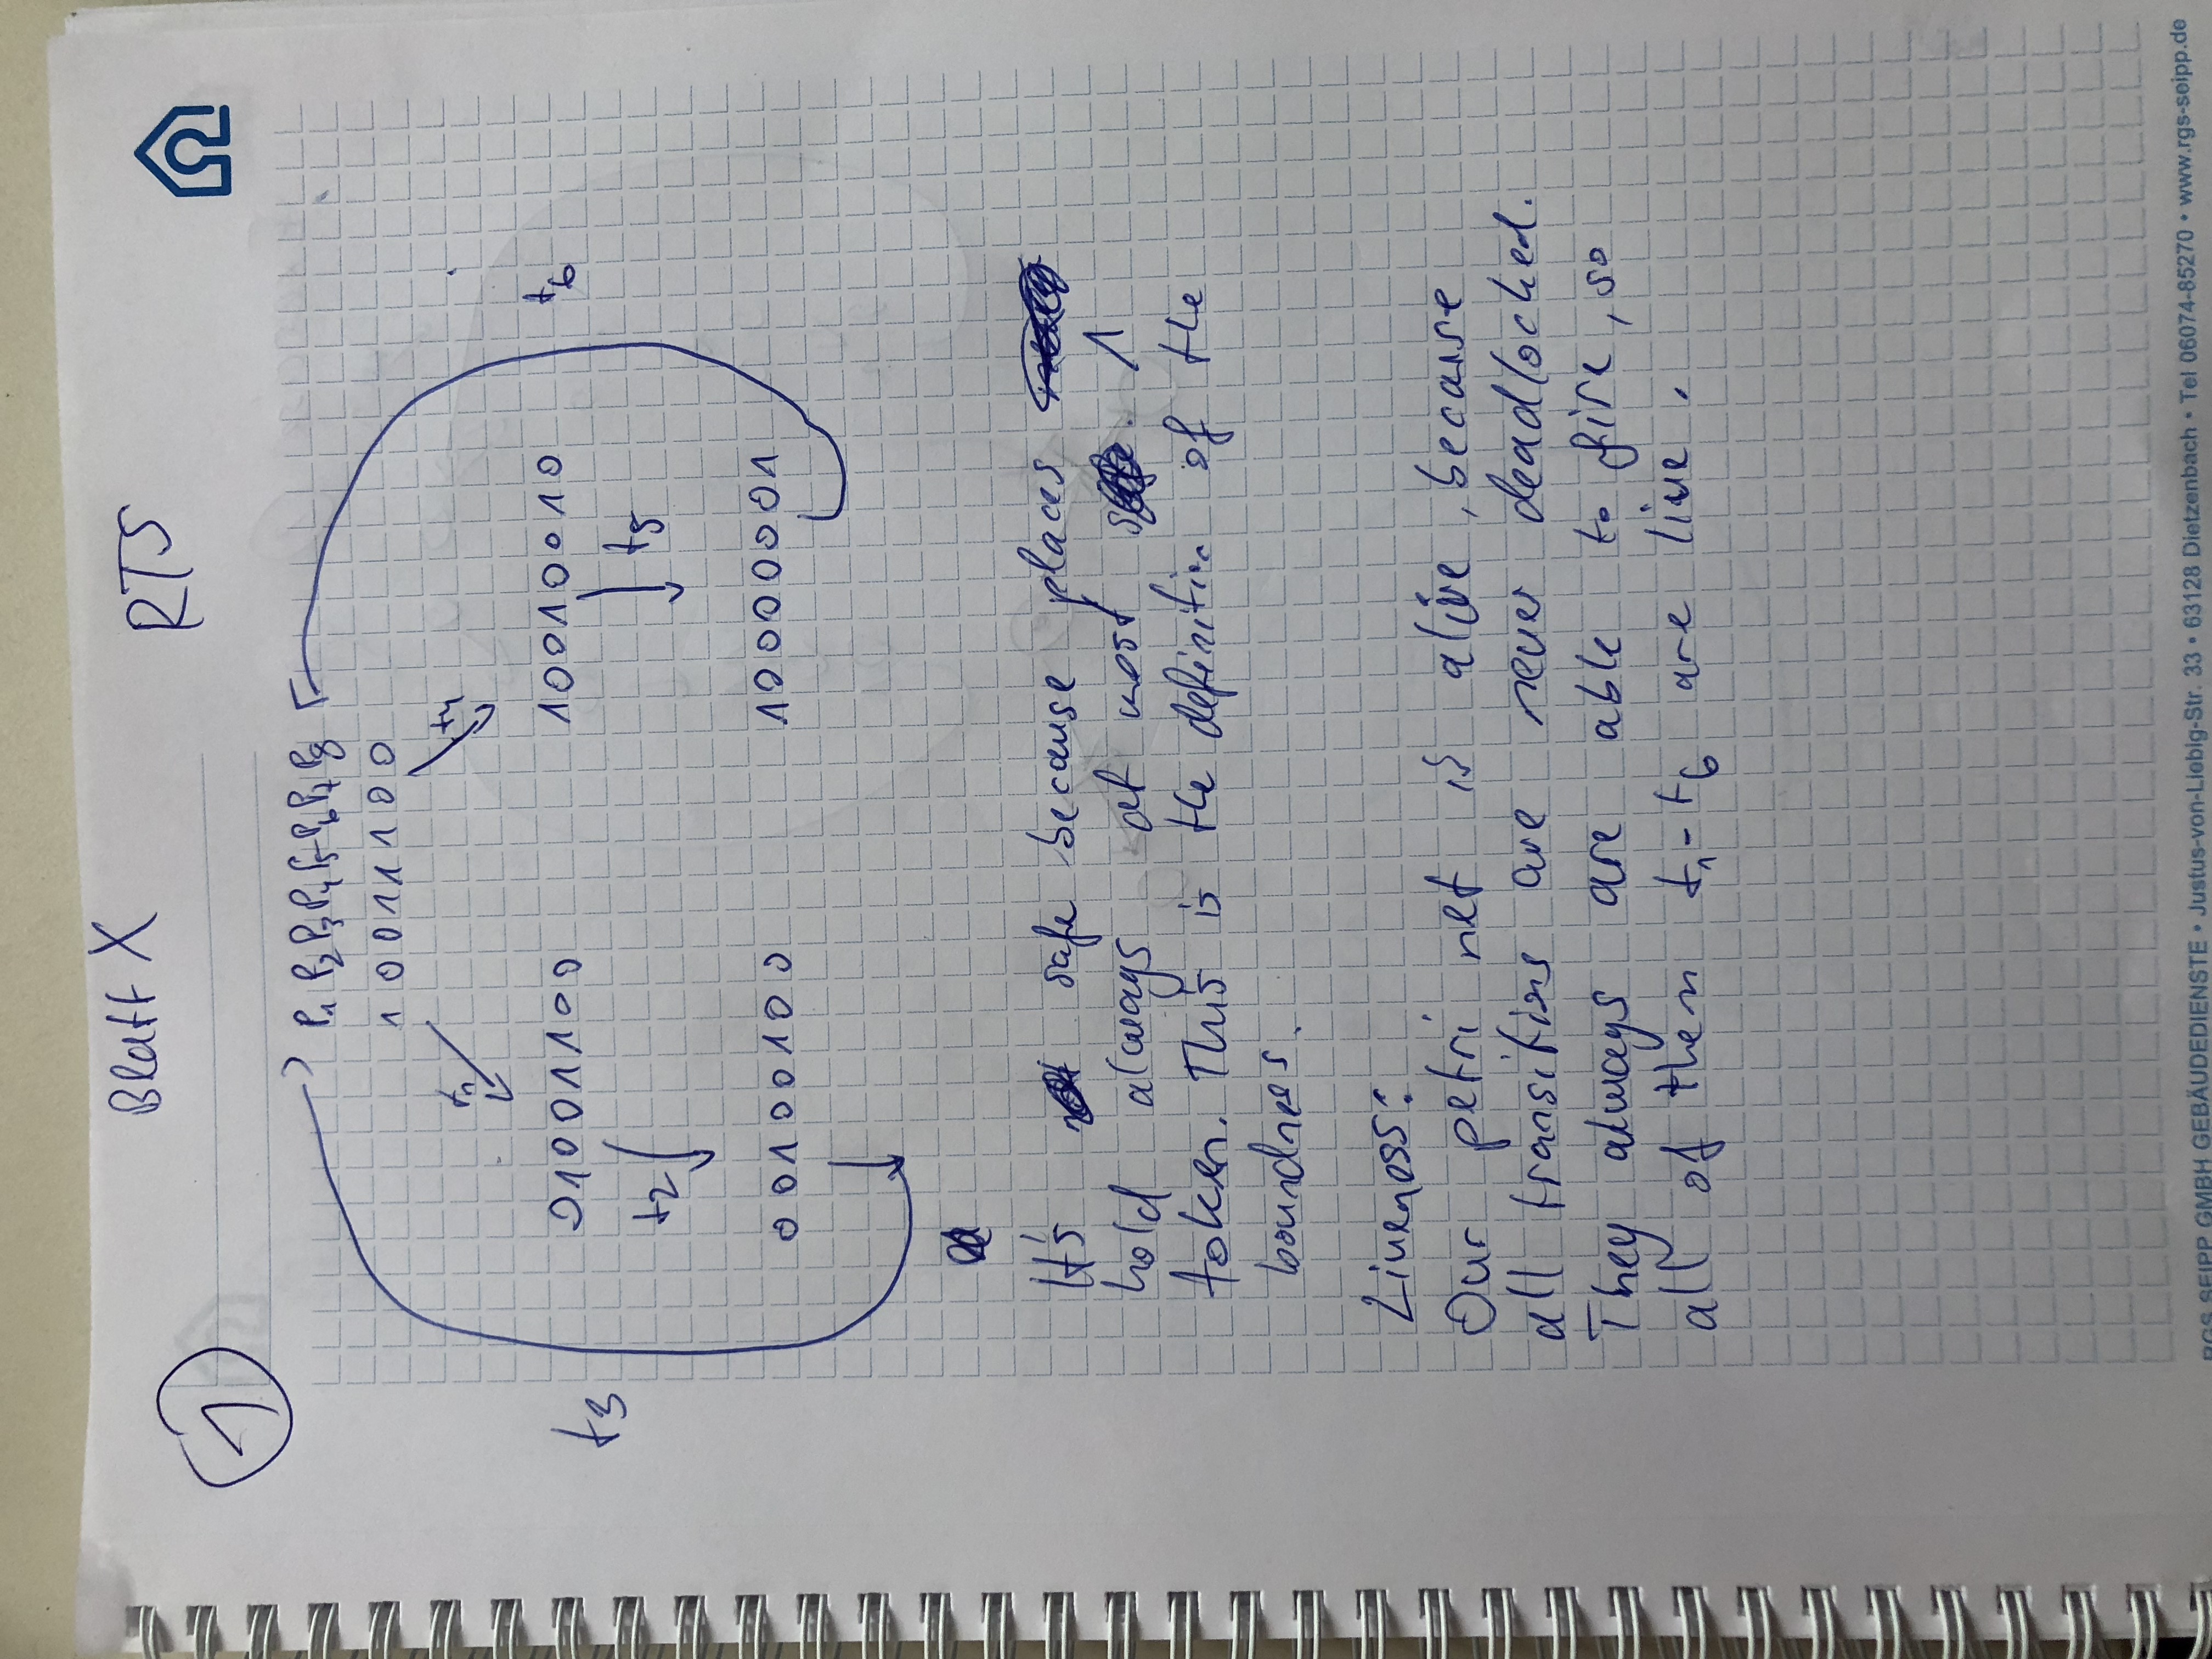 Blatt X RTS
1
P1 P2 P3 P4 P5 P6 P7 P8
1 0 0 1 1 1 0 0
t1 t4
01001100 10010010
t3 t6
t2 t5
00100100 10000001
It's safe because places
hold always at most 1
token. This is the definition of the
boundness.
Liveness:
Our petri net is alive, because
all transitions are never deadlocked.
They always are able to fire, so
all of them t1-t6 are live.
RGS SEIPP GMBH GEBÄUDEDIENSTE • Justus-von-Liebig-Str. 33 • 63128 Dietzenbach • Tel 06074-85270 • www.rgs-seipp.de